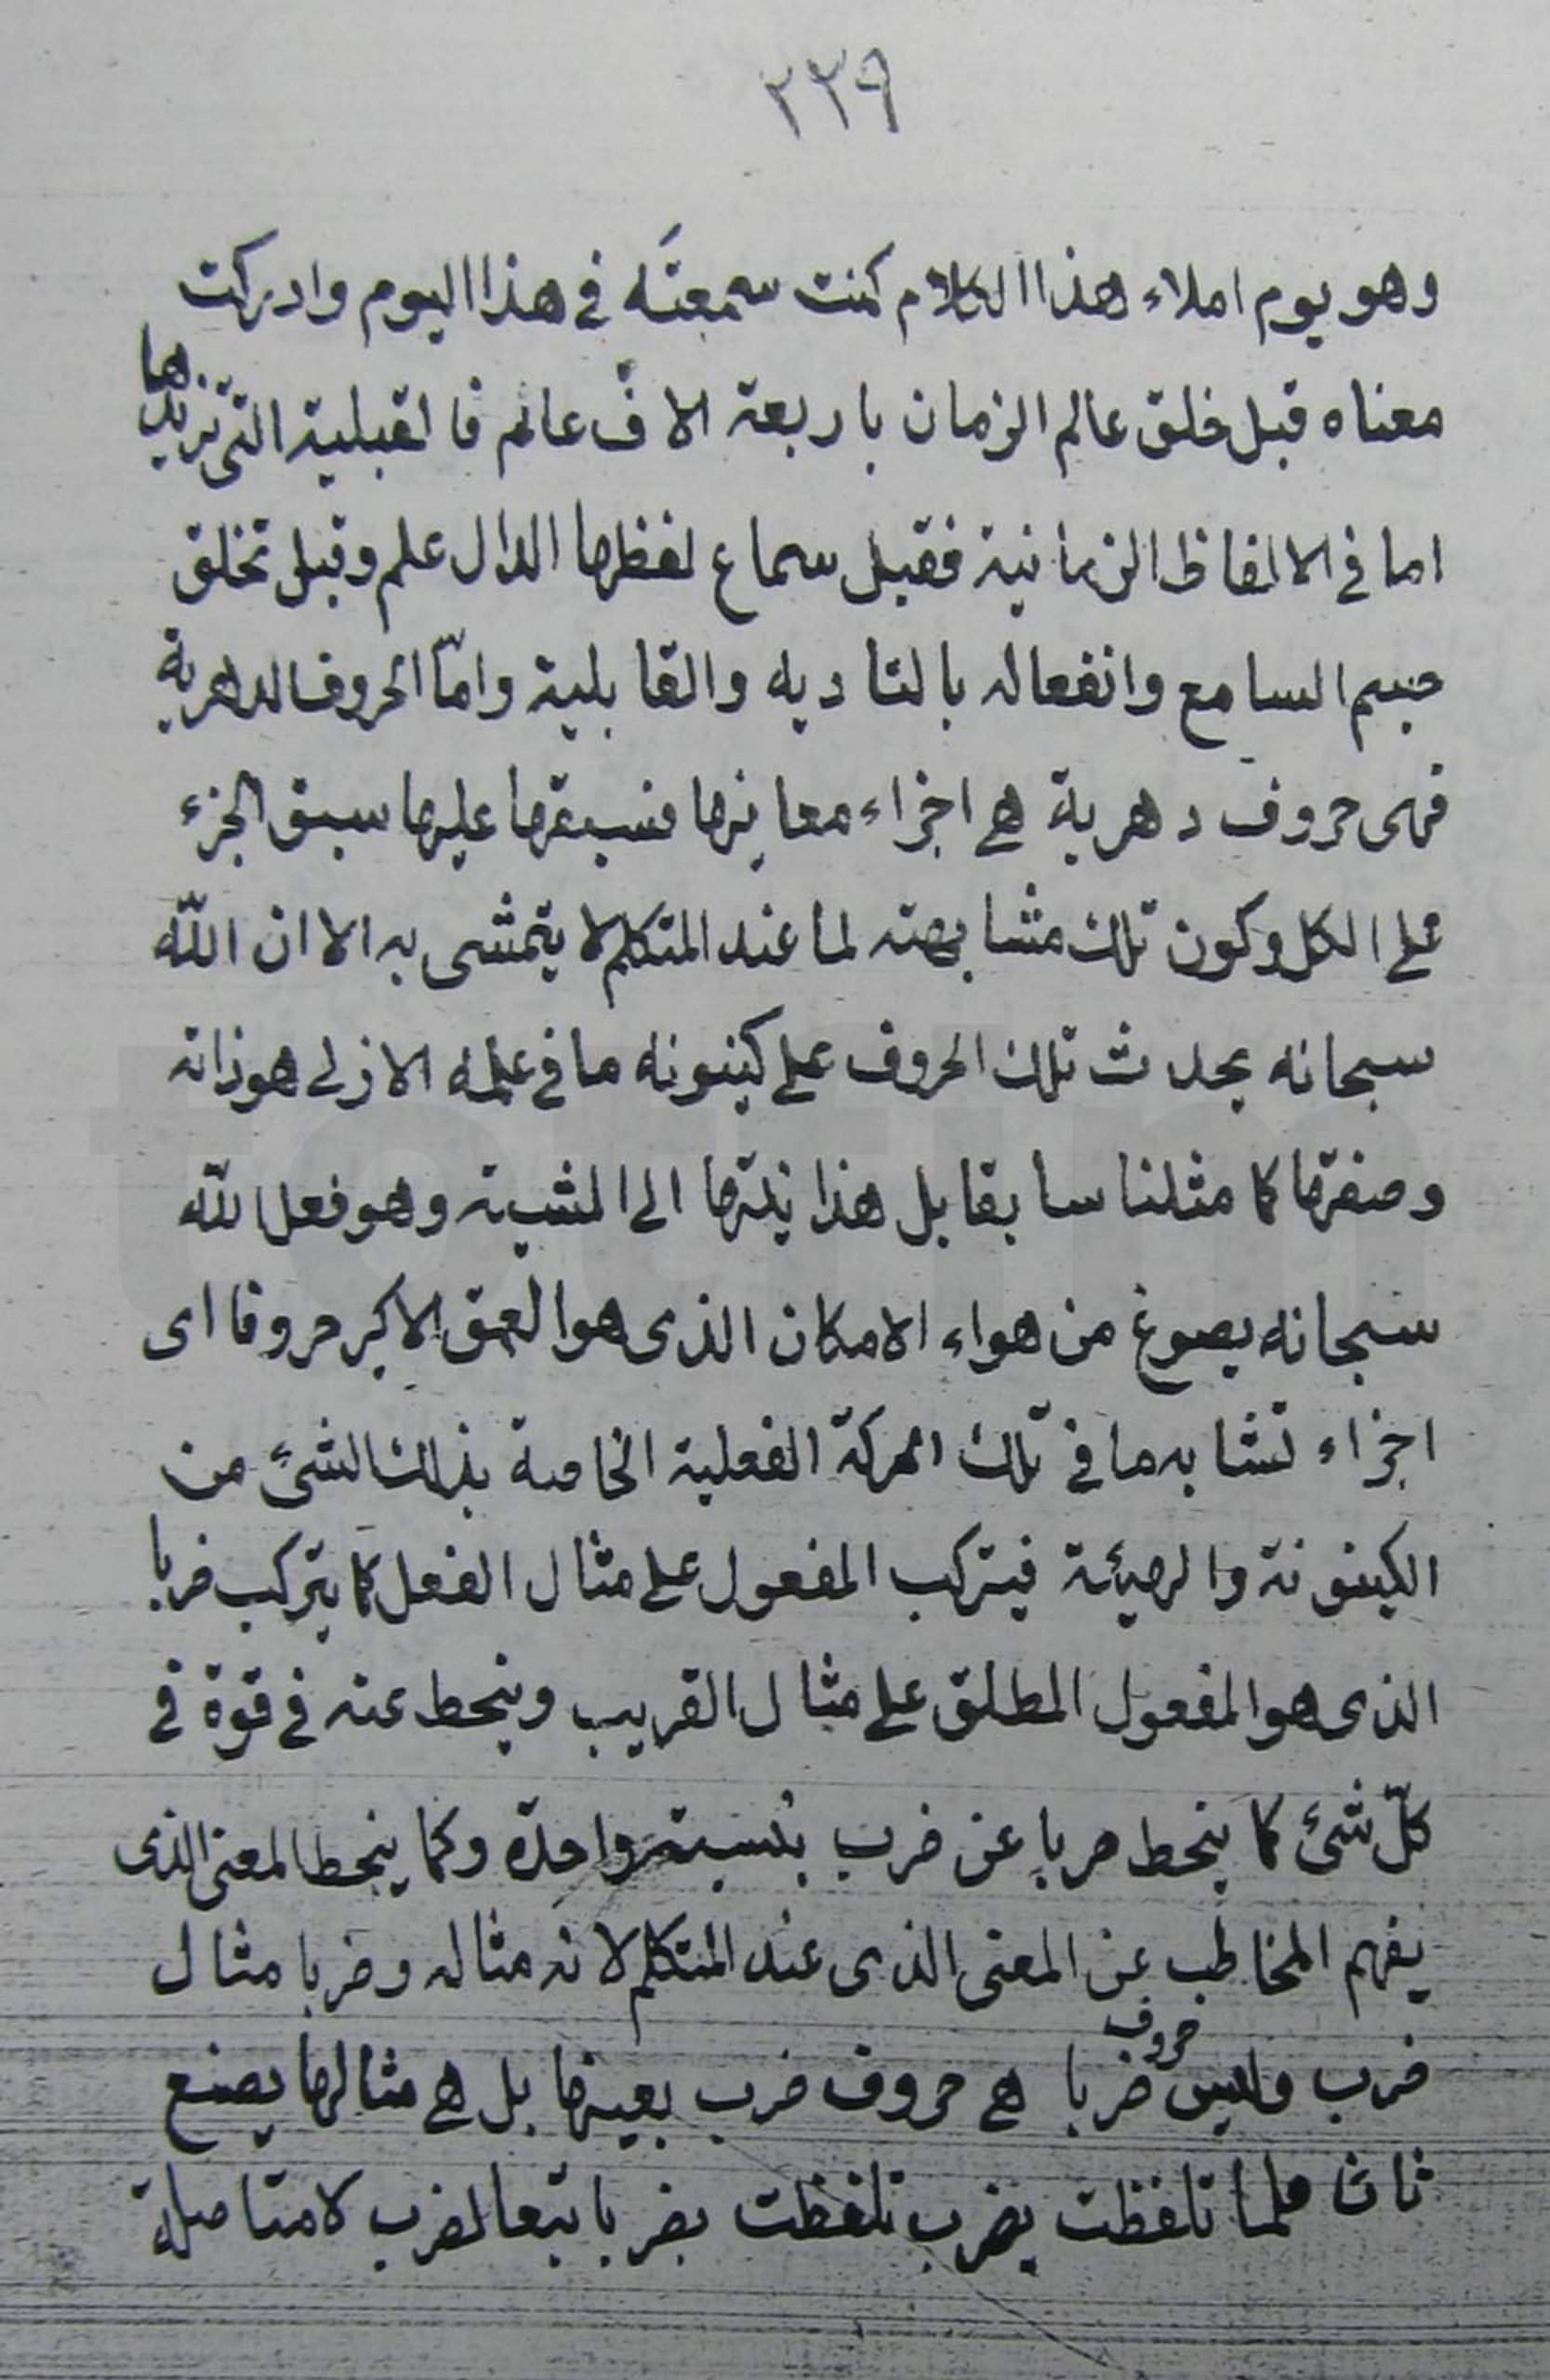 ٢٣٩
وهو يوم املاء هذا الكلام كنت سمعتَه في هذا اليوم وادركت
معناه قبل خلق عالم الزمان باربعة الاف عالم فالقبلية التى تريدها
اما في الالفاظ الزمانية فقبل سماع لفظها الدال علم وقبل تخلق
جسم السامع وانفعاله بالتاديه والقابلية وامّا الحروف الدهرية
فهى حروف دهرية هي اجزاء معانيها فسبقها عليها سبق الجزء
على الكل وكون تلك مشابهته لما عند المتكلم لا يتمشى به الا ان اللّه
سبحانه يحدث تلك الحروف على كينونه ما في علمه الازلي هو ذاته
وصفتها كما مثلنا سابقا بل هذا الى المشية وهو فعل اللّه
سبحانه يصوغ من هواء الامكان الذى هو العمق الاكبر حروفا اى
اجزاء تشابه ما في تلك الحركة الفعلية الخاصة بذلك الشئ من
الكينونة والهيئة فيتركب المفعول على مثال الفعل كما يتركب ضربا
الذى هو المفعول المطلق على مثال القريب وينحط عنه في قوة في
كلّ شئ كما ينحط ضربا عن ضرب بنسبة واحدة وكما ينحط المعنى الذى
يفهم المخاطب عن المعنى الذى عند المتكلم لانه مثاله وضربا مثال
ضرب وليس حروف ضربا هي حروف ضرب بعينها بل هي مثالها يصنع
ثان فلما تلفظت بضرب تلفظت بضربا تبعا لضرب لا متاصلة